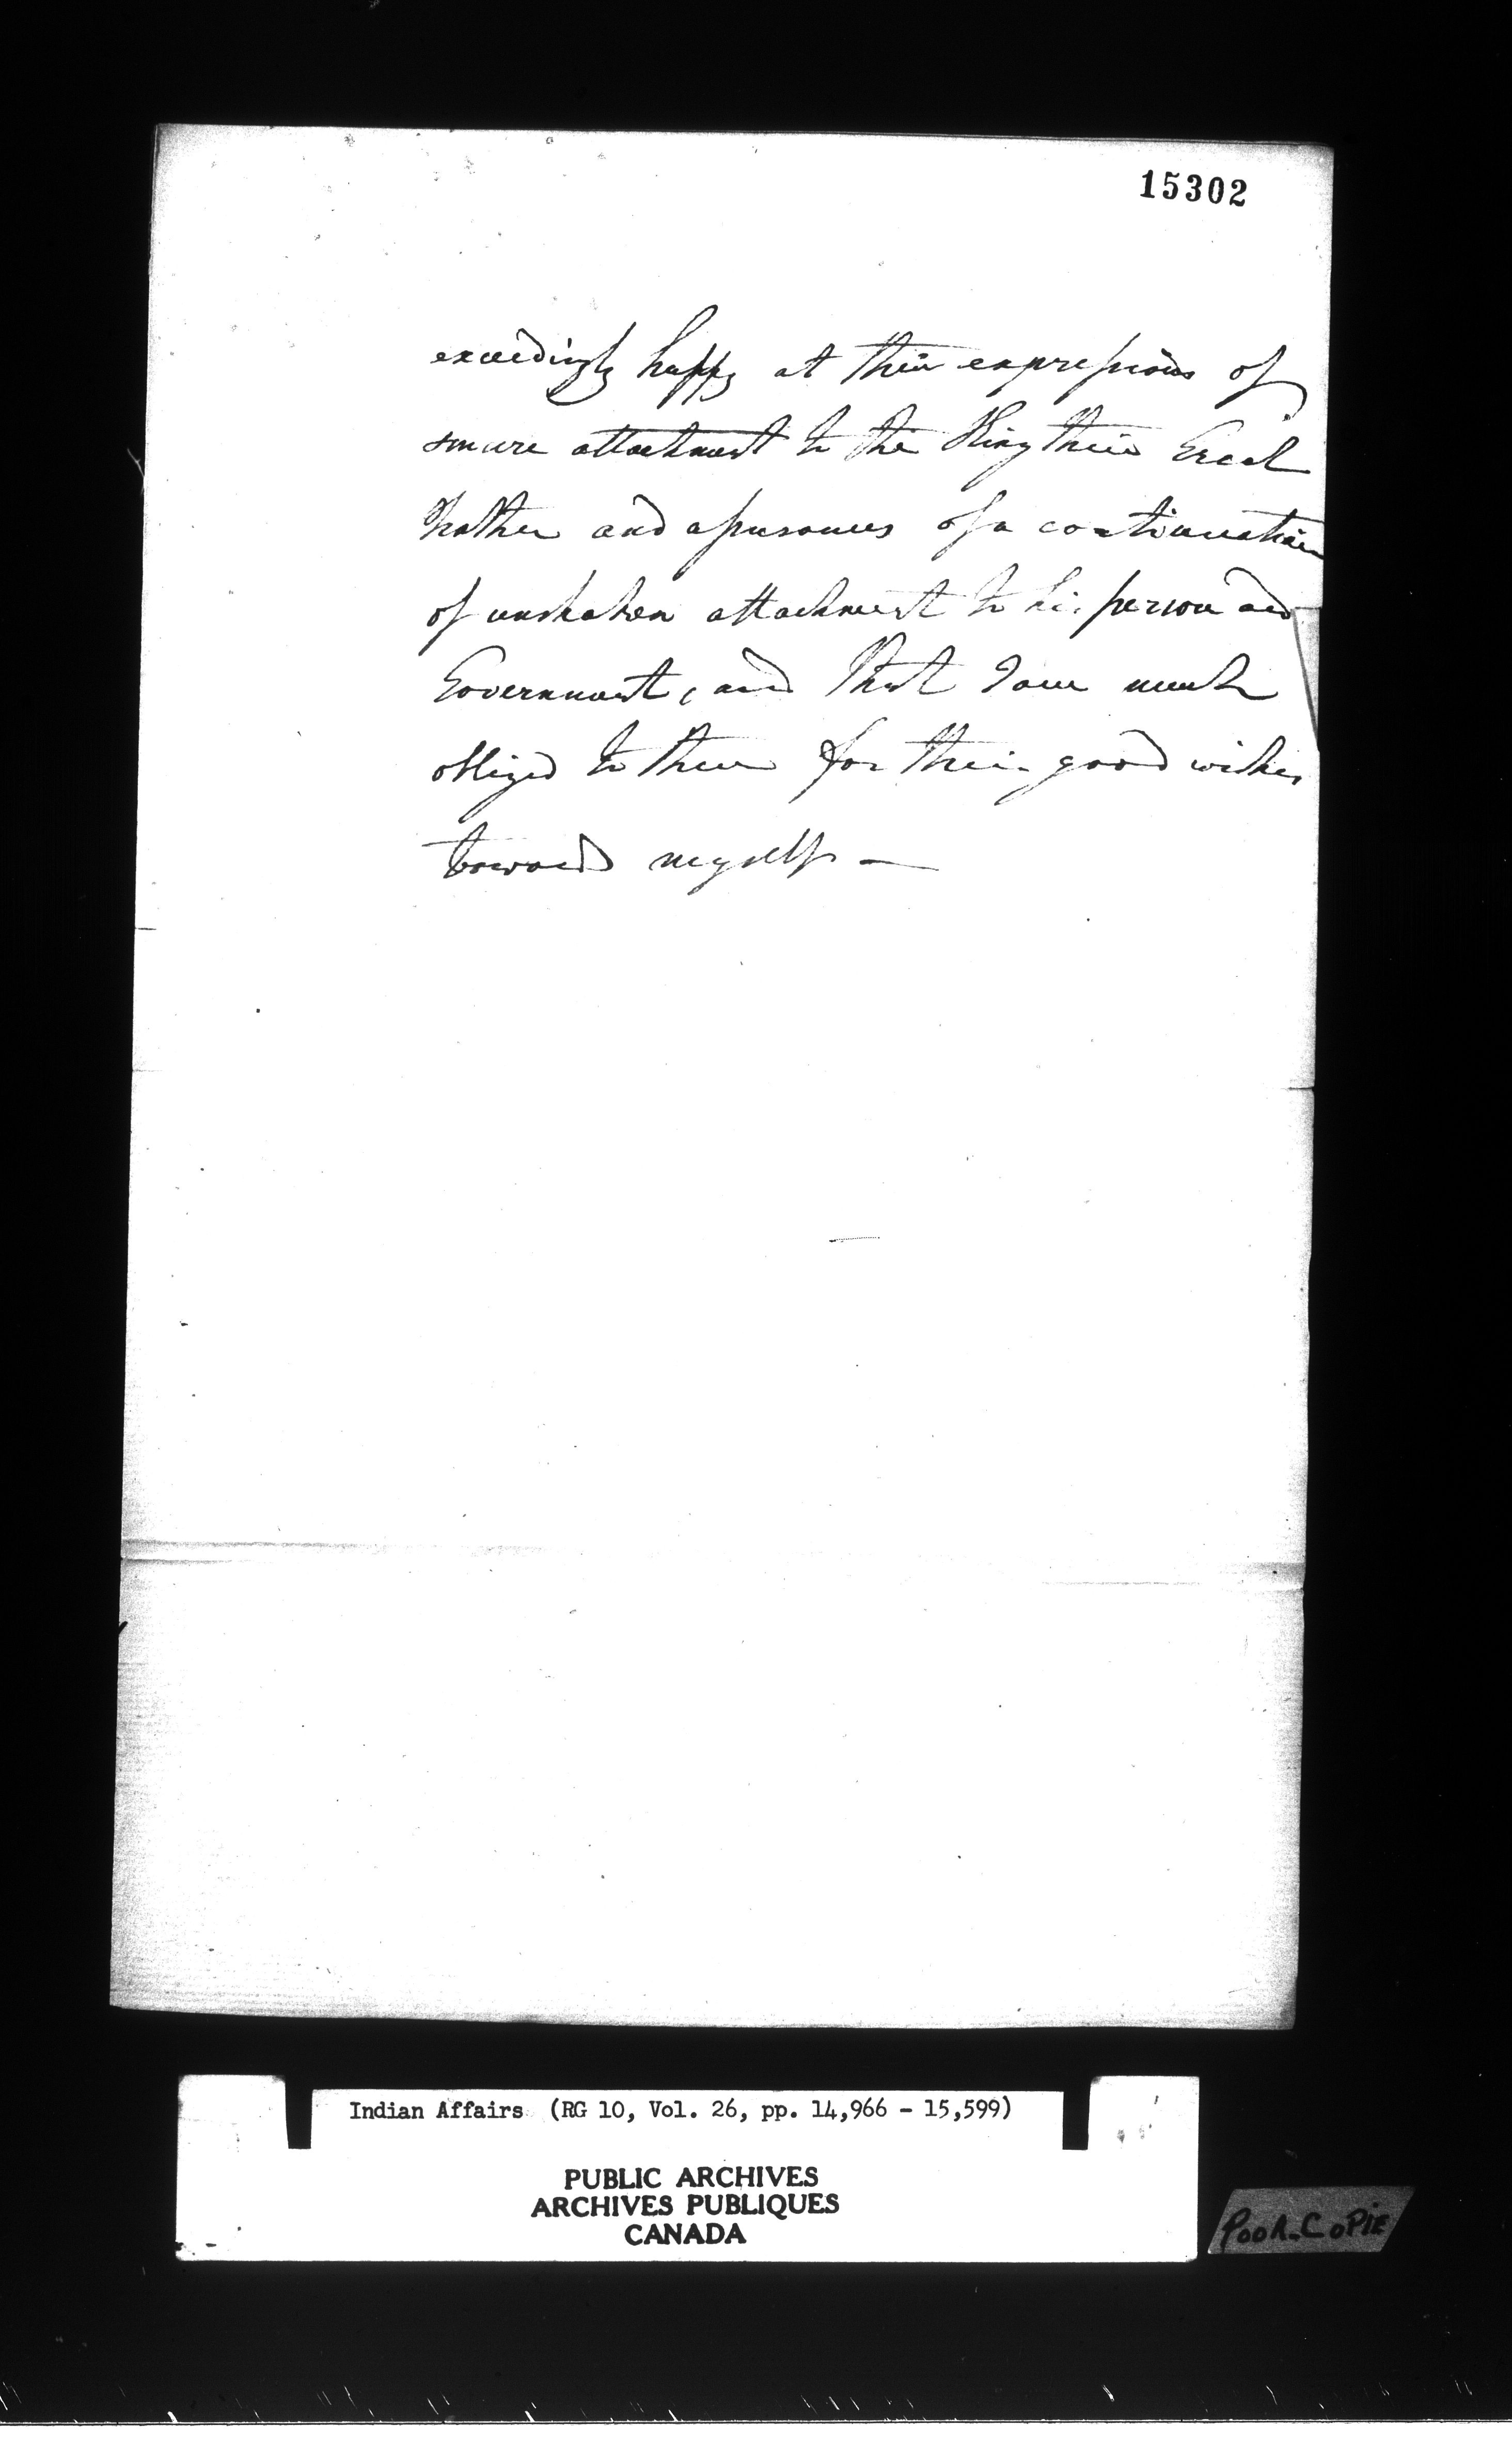 15302
exceedingly happy at their expressions of
sincere attachment to the King their Great
Father and assurances of a continuation
of unshaken attachment to his person and
Government, and that I am much
obliged to them for their good wishes
towards myself —
Indian Affairs (RG 10, Vol. 26, pp. 14,966 - 15,599)
PUBLIC ARCHIVES
ARCHIVES PUBLIQUES
CANADA
POOR COPIE